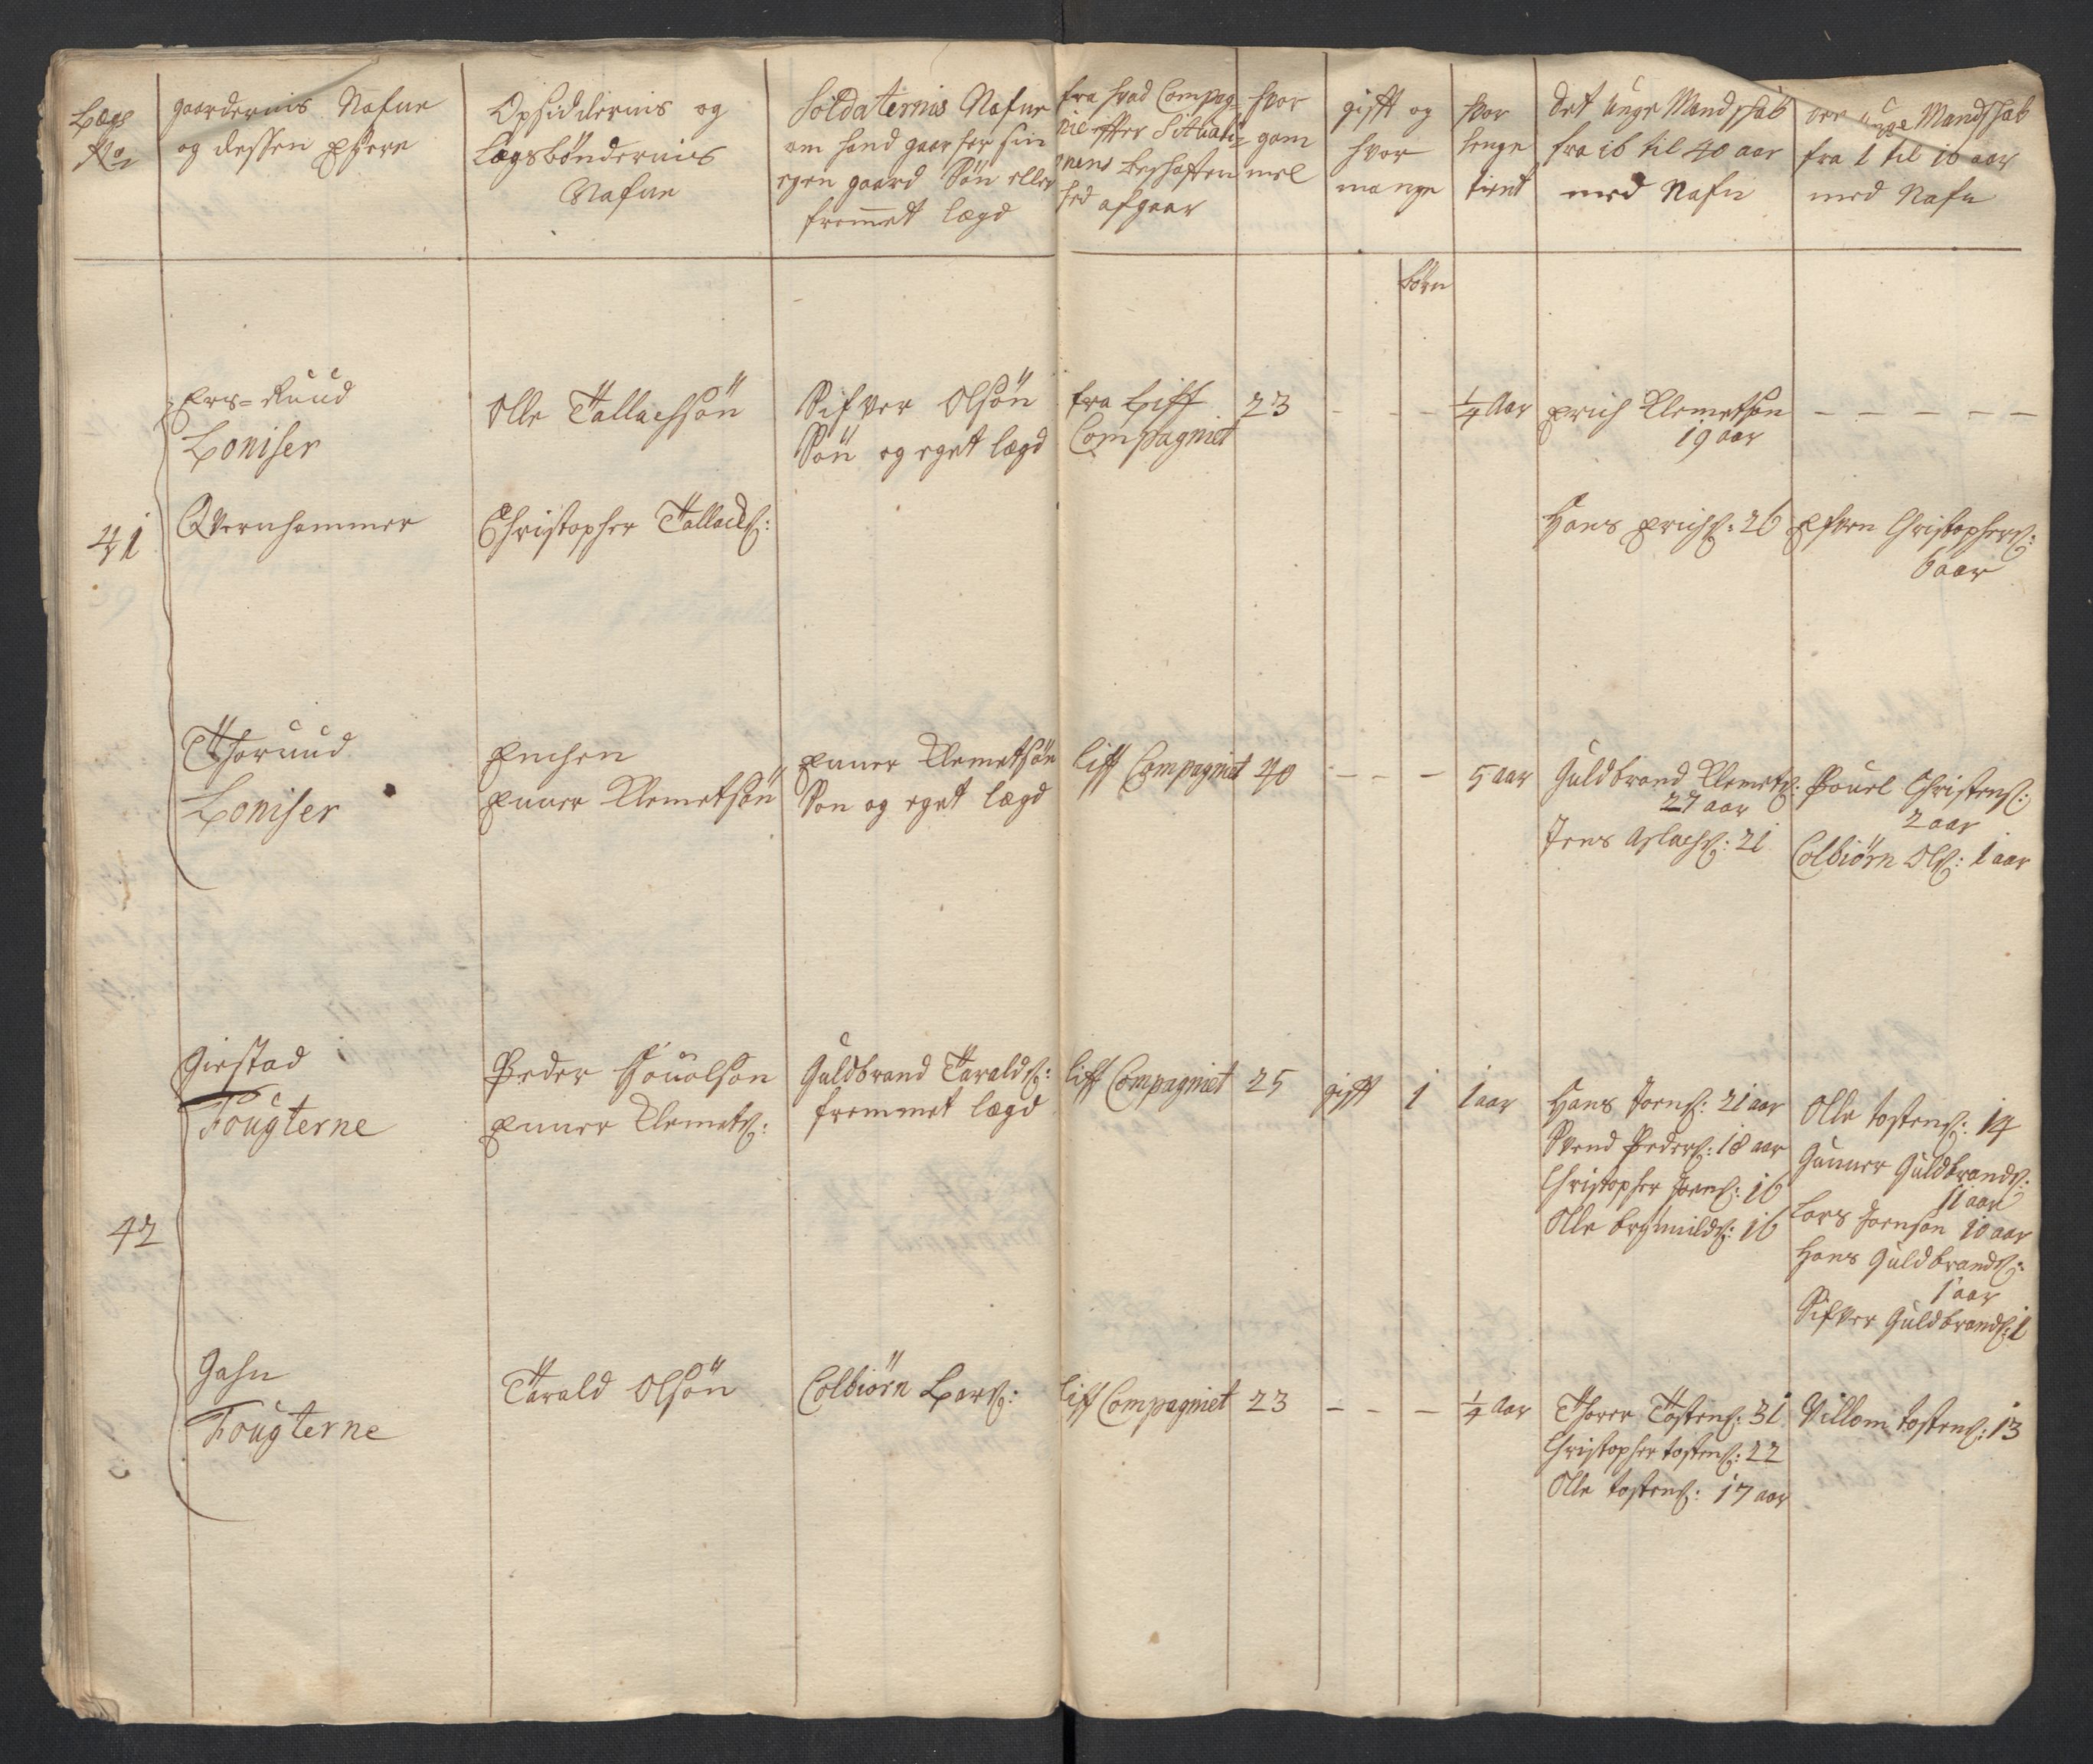 Legs
No
gaardernis Nafne
og dessen Eyere
Opsiddernis og
Lægsbøndernis
Nafne
Soldaternis Nafne
om hand gaar for sin
egen gaard Søn eller
fremmet lægd
fra hvad Compag-
nie effter Situati-
onens beskaffen
hed afgaar
hvor
gam
mel
gifft og
hvor
mange
hvor
lenge
tient
Det unge Mandskab
fra 16 til 40 aar
med Nafn
unge Mandskab
fra 1 til 16 aar
med Nafn
børn
Ers-Ruud
Loniser
Olle Tallachsøn
Sifver Olsøn
Søn og eget lægd
fra Liff
Compagniet
23
- - -
1/4 Aar
Erich Klemetsøn
19 aar
- - - - -
41
Qvernhammer
Christopher Tallacks:
Hans Erichs: 26
Christophers:
6 aar
Thoruud
Loniser
Enchen
Enner Klemetsøn
Enner Klemetsøn
Søn og eget lægd
liff Compagniet
40
- - -
5 aar
Guldbrand Klemets:
27 aar
Jens Aslachs: 21
Pouel Christens:
2 aar
Colbiørn Ols: 1 aar
Giestad
Fougterne
Peder
Enner Klemets:
Guldbrand Taralds:
fremmet lægd
liff Compagniet
25
gifft
1
1 aar
Hans Joens: 21 aar
Svend Peders: 18 aar
Christopher Joens: 16
Olle 16
Olle tostens: 14
Gunner Guldbrands:
11 aar
Lars Joensøn 10 aar
Hans Guldbrands:
1 aar
Sifver Guldbrands: 1
42
Gahn
Fougterne
Tarald Olsøn
Colbiørn Lars:
liff Compagniet
23
- - -
1/4 Aar
Thorer Tostens: 31
Christopher tostens: 22
Olle tostens: 17 aar
Villom tostens: 13